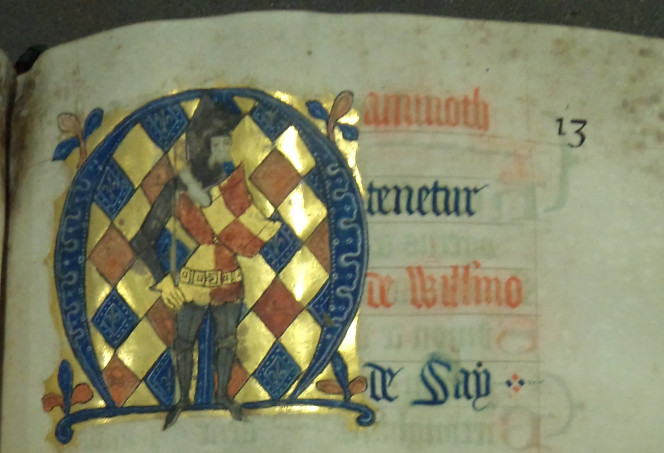 Mammoth
13
tenetur
de Willmo
de Say